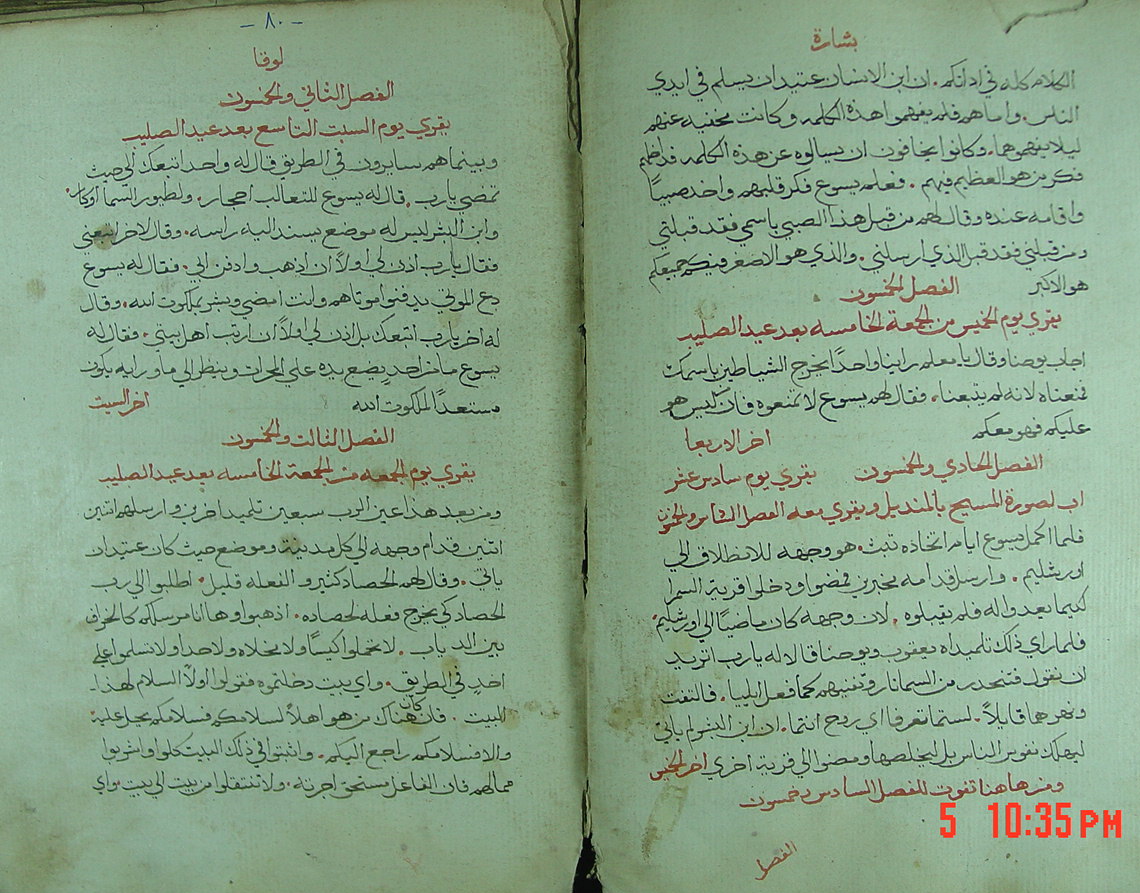 بشارة
الكلام كله في اذانكم. ان ابن الانسان عتيد ان يسلم في ايدي
الناس. واما هم فلم يفهموا هذه الكلمه وكانت مخفيه عنهم
ليلا يفهموها. وكانوا يخافون ان يسالوه عن هذه الكلمه فداخلهم
فكر من هو العظيم فيهم. فعلم يسوع فكر قلبهم واخد صبيبًا
واقامه عنده وقال لهم من قبل هذا الصبي باسمي فقد قبلني
ومن قبلني فقد قبل الذي ارسلني. والذي هو الاصغر فيكم جميعكم
هو الاكبر
الفصل الخمسون
يقري يوم الخميس من الجمعة الخامسه بعد عيد الصليب
اجاب يوحنا وقال يا معلم راينا واحدًا يخرج الشياطين باسمك
فمنعناه لانه لم يتبعنا. فقال لهم يسوع لا تمنعوه فان من ليس هو
عليكم فهو معكم
اخر الاربعا
الفصل الحادي والخمسون
يقري يوم سادس عشر
اب لصورة المسيح بالمنديل ويقري معه الفصل السادس والخمسون
فلما اكمل يسوع ايام اتخاذه تبت. هو وجهه للانطلاق الي
اورشليم. وارسل قدامه مخبرين فمضوا ودخلوا قرية السمرا
كيما يعدوا له فلم يقبلوه. لان وجهه كان ماضيًا الي اورشليم.
فلما راي ذلك تلميداه يعقوب ويوحنا قالا له يارب اتريد
ان نقول فتنحدر من السما نار وتفنيهم كما فعل ايليا. فالتفت
ونهرهما قايلاً. لستما تعرفا اي روح انتما. ان ابن البشر لم ياتي
ليهلك نفوس الناس بل ليخلصها ومضوا الي قرية اخري اخر الخميس
ومن هاهنا تفوت للفصل السادس وخمسون
الفصل
- ٨٠ -
لوقا
الفصل الثاني والخمسون
يقري يوم السبت التاسع بعد عيد الصليب
وبينما هم سايرون في الطريق قال له واحد اتبعك الي حيث
تمضي يارب. قال له يسوع للتعالب احجار. ولطيور السما اوكار.
وابن البشر ليس له موضع يسند اليه راسه. وقال لاخر اتبعني
فقال يارب اذن لي اولاً ان اذهب وادفن ابي. فقال له يسوع
دع الموتي يدفنوا موتاهم وانت امضي وبشر بملكوت الله. وقال
له اخر يارب اتبعك بل اذن لي اولاً ان ارتب اهل بيتي. فقال له
يسوع ما من احدٍ يضع يده علي المحرات وينظر الي ماورايه يكون
مستعدًا لملكوت الله
اخر السبت
الفصل الثالت والخمسون
يقري يوم الجمعه من الجمعة الخامسه بعد عيد الصليب
ومن بعد هذا عين الرب سبعين تلميد اخرين وارسلهم اتنين
اتنين قدام وجهه الي كل مدينة وموضع حيث كان عتيد ان
ياتي. وقال لهم الحصاد كثير و الفعلة قليل. اطلبوا الي رب
الحصاد كي يخرج فعله لحصاده. اذهبوا وها انا مرسلكم كالخراف
بين الدياب. لا تحملوا كيسًا ولا مخلاه ولا حدا ولا تسلموا علي
احدٍ في الطريق. واي بيت دخلتموه فقولوا اولاً السلام لهذا
البيت. فان كان هناك من هو اهلاً لسلامكم فسلامكم يحل عليه
والا فسلامكم راجع اليكم. واتبتوا في ذلك البيت كلوا واشربوا
مما لهم فان الفاعل مستحق اجرته. ولا تنتقلوا من بيت الي بيت واي
5 10:35 PM